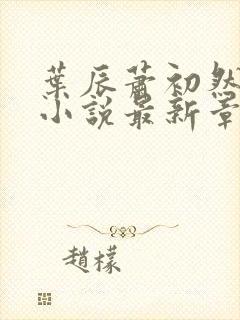 葉辰蕭初然
小說最新章
趙檬